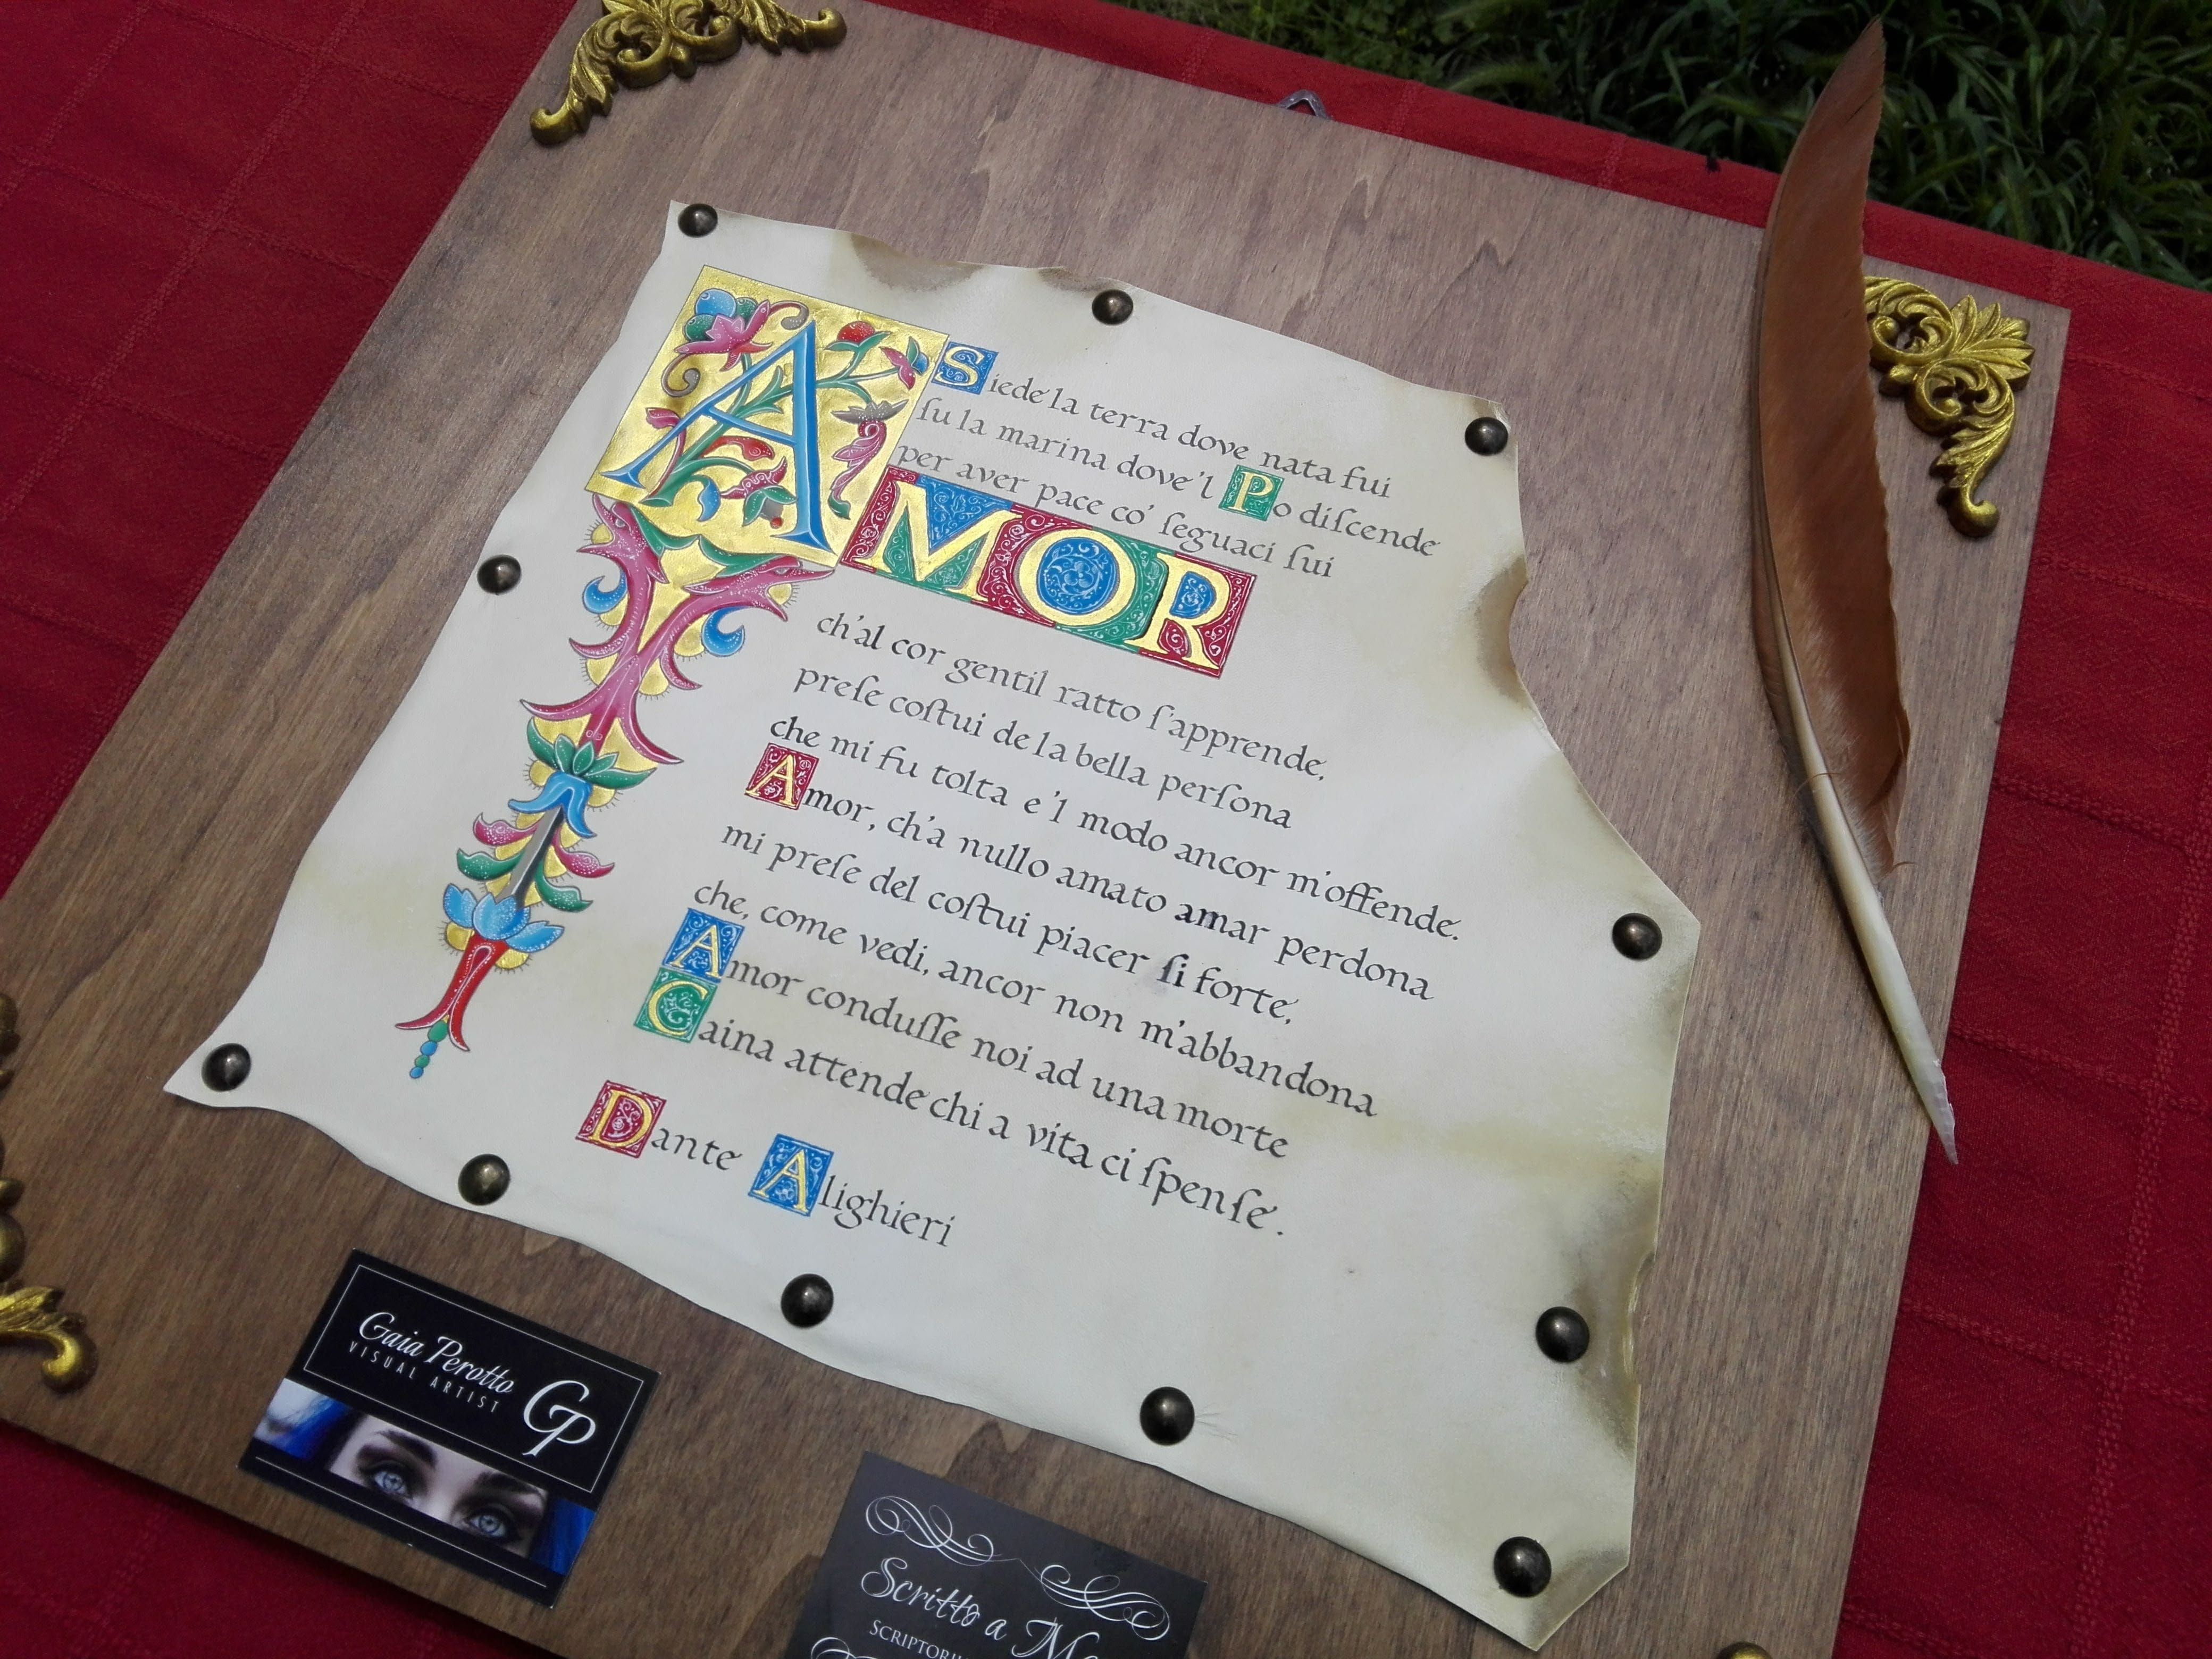 Siede la terra dove nata fui
ſu la marina dove'l Po diſcende
per aver pace co' ſeguaci ſui
AMOR
ch'al cor gentil ratto ſ'apprende,
preſe coſtui de la bella perſona
che mi fu tolta e'l modo ancor m'offende.
Amor, ch'a nullo amato amar perdona
mi preſe del coſtui piacer ſi forte,
che, come vedi, ancor non m'abbandona
Amor conduſſe noi ad una morte
Caina attende chi a vita ci ſpenſe.
Dante Alighieri
Gaia Perotto
VISUAL ARTIST
GP
Scritto a